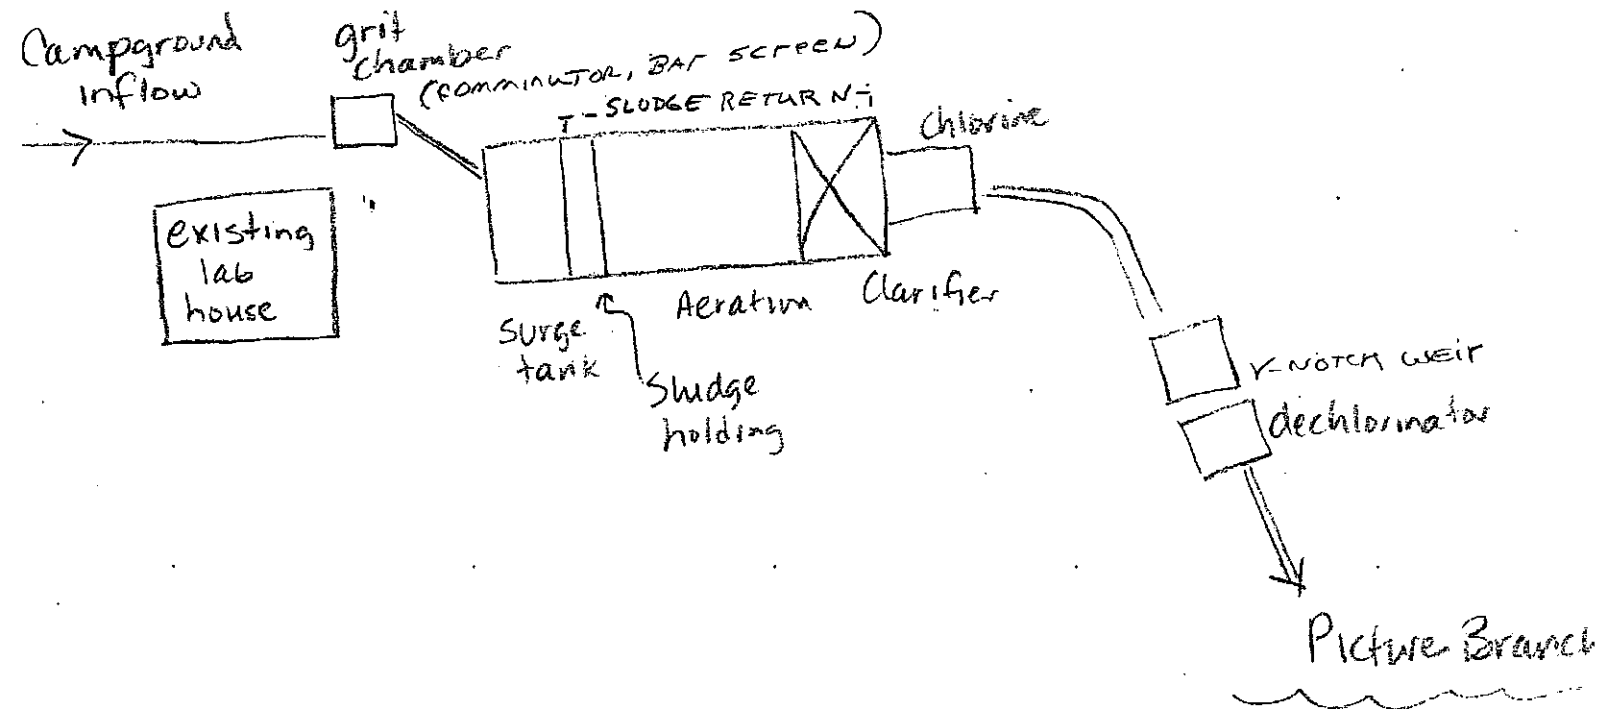 Campground
inflow
grit
chamber
(Comminutor, BAr Screen)
- SLUDGE RETURN -
Chlorine
existing
lab
house
Surge
tank
Sludge
holding
Aeration
Clarifier
V-NOTCH weir
dechlorinator
Picture Branch